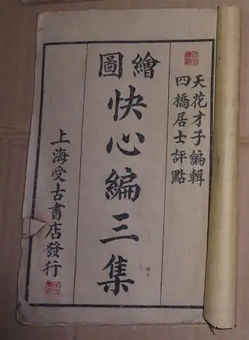 天花才子編輯
四橋居士評點
繪圖
快心編三集
上海受古書店發行